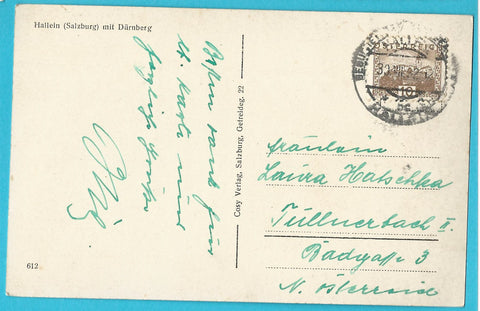 Hallein (Salzburg) mit Dürnberg
Besten Dank für
lt. Karte und
herzliche Grüße
612
Cosy Verlag, Salzburg, Getreideg. 22
ÖSTERREICH
10
HALLEIN
Fräulein
Laura Hatschka
Tullnerbach II.
Badgasse 3
N. Österreich